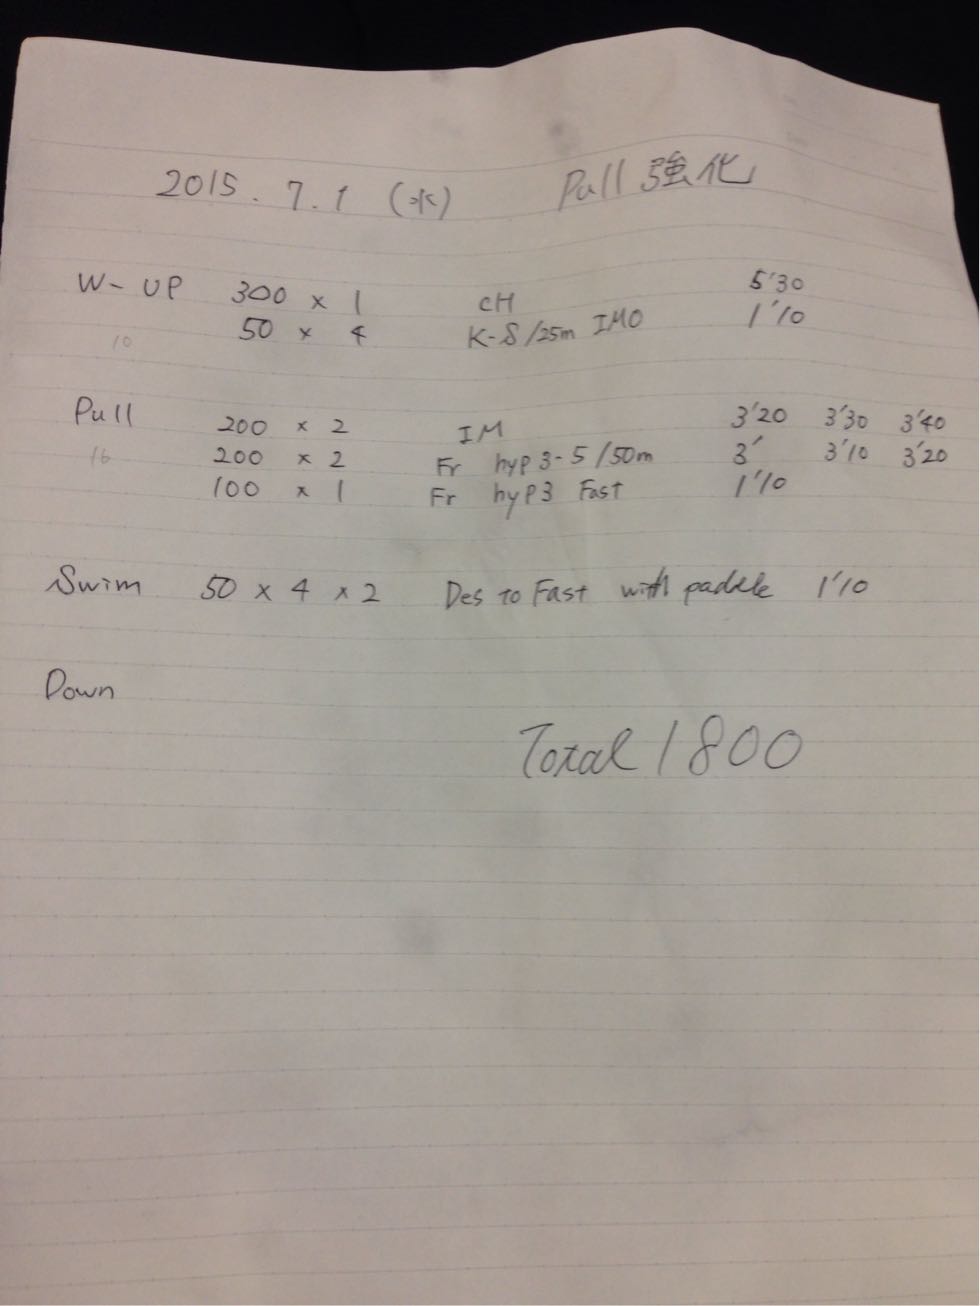 2015. 7.1 (水) Pull 強化
W-UP 300 × 1 cH 5'30
50 × 4 K-S/25m IMO 1'10
10
Pull 200 × 2 IM 3'20 3'30 3'40
200 × 2 Fr hyp 3-5/50m 3' 3'10 3'20
16
100 × 1 Fr hyp3 Fast 1'10
Swim 50 × 4 × 2 Des to Fast with paddle 1'10
Down
Total 1800